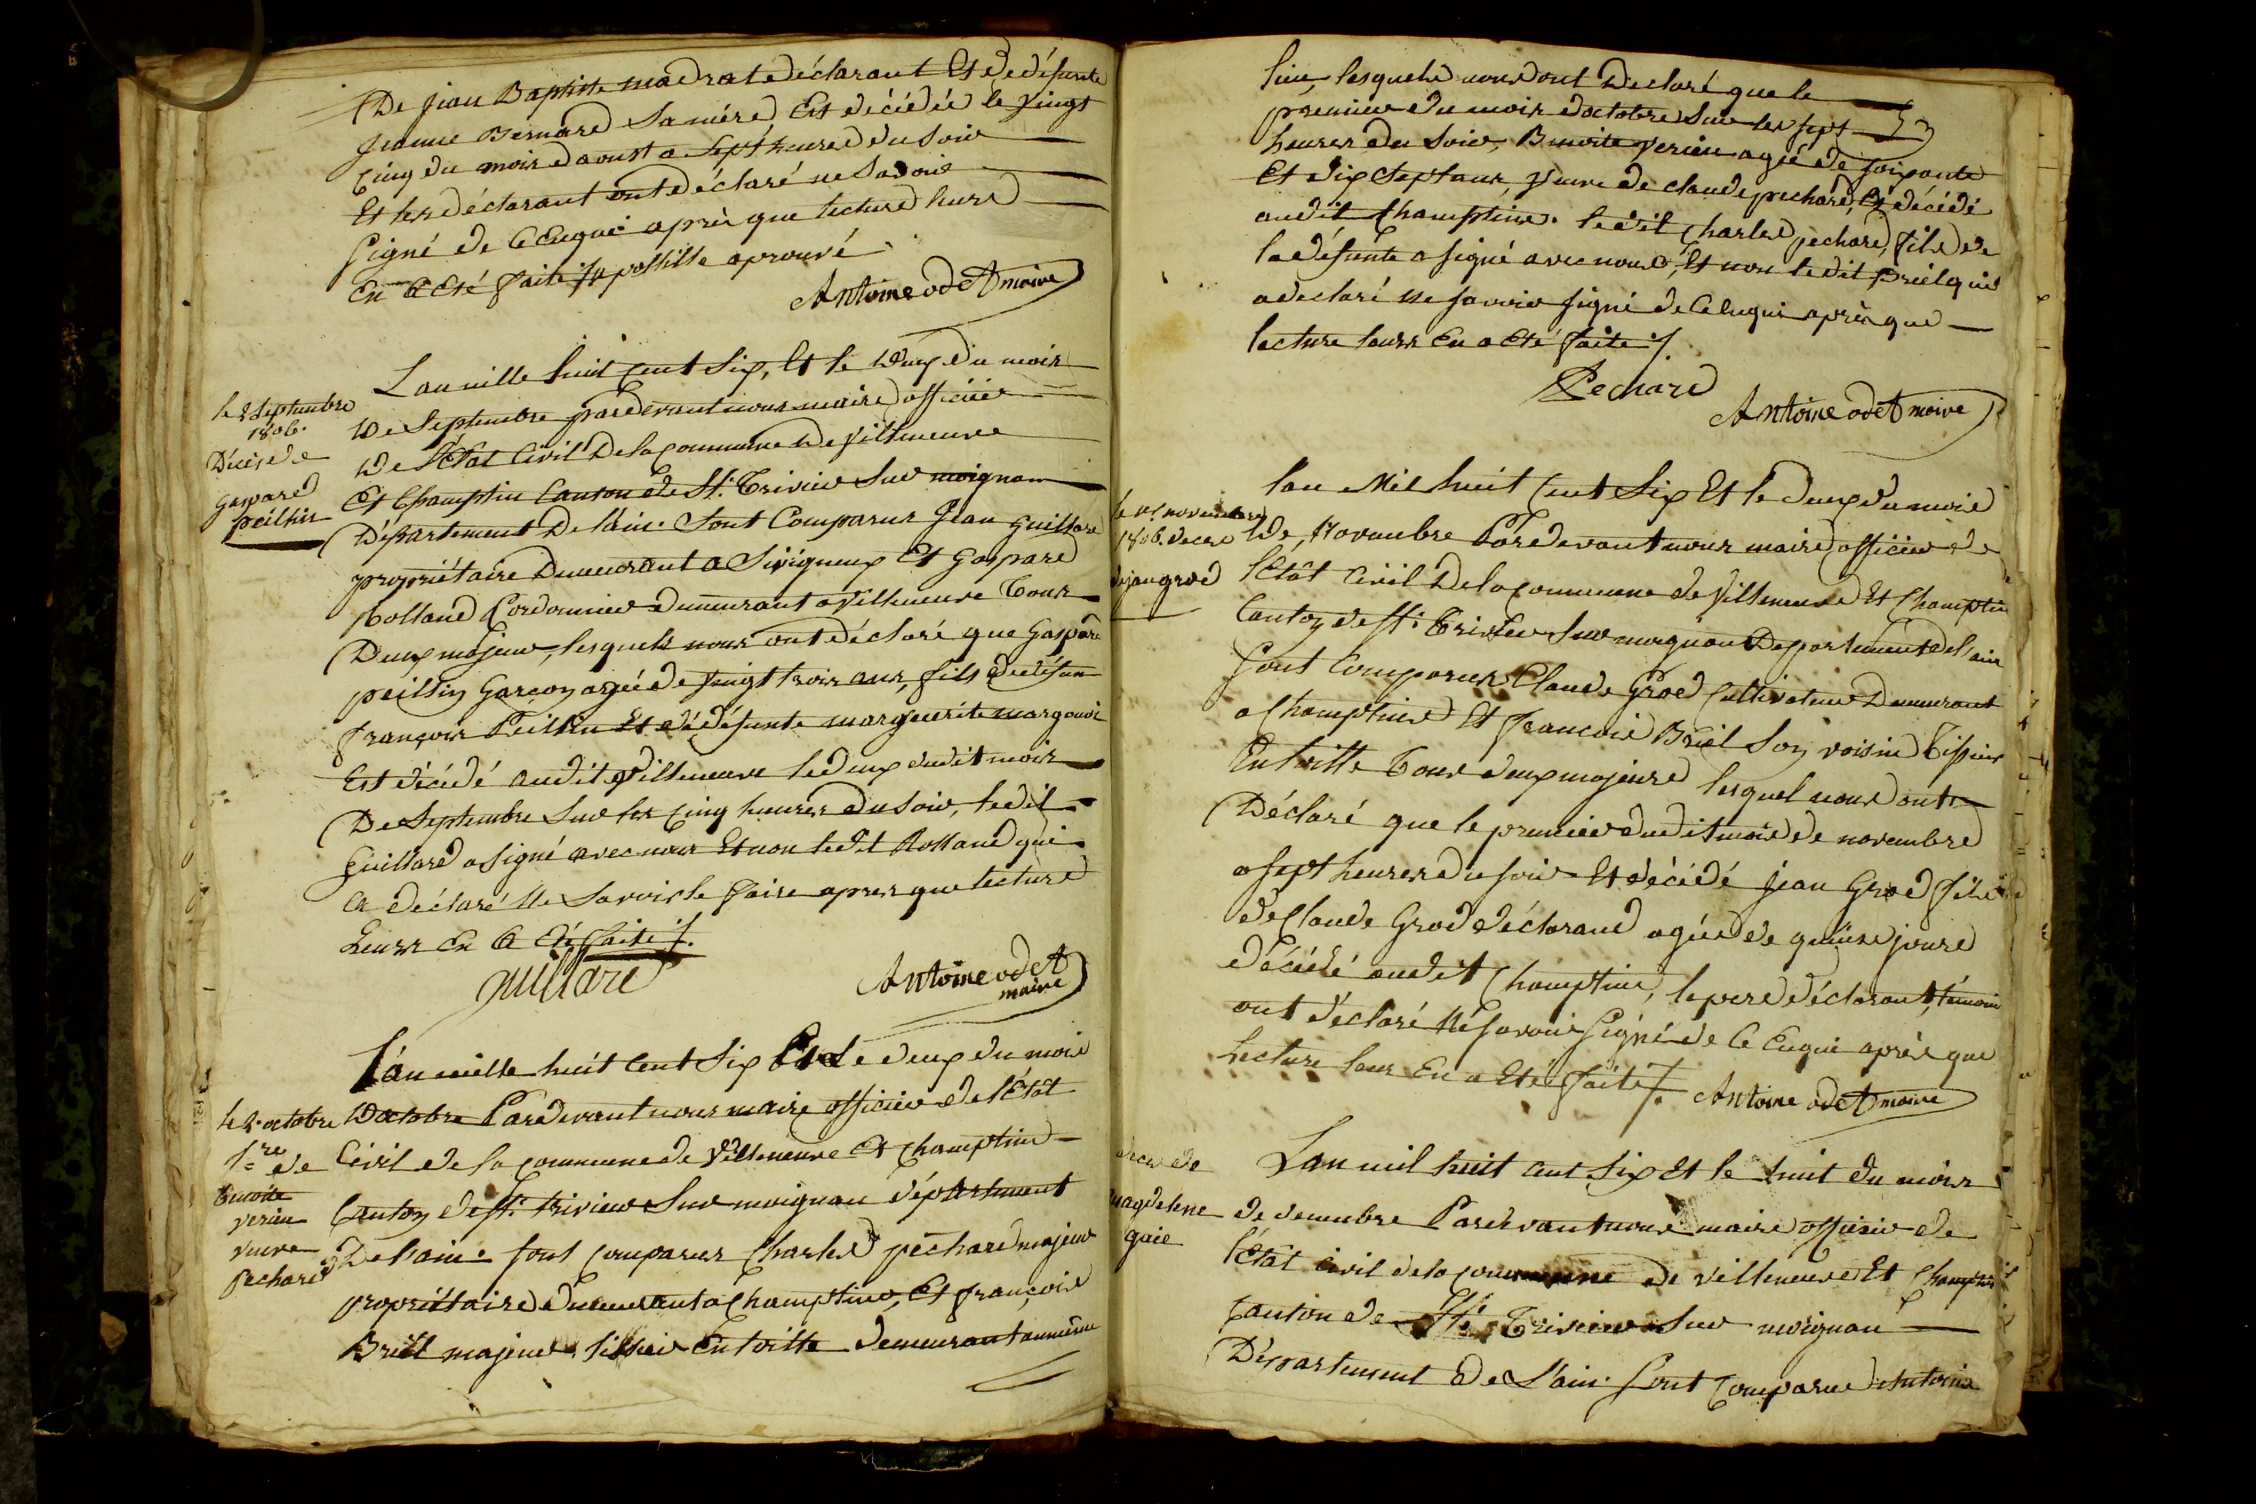 De jean Baptiste madrat déclarant Et de défunte
jeanne Bernard Sa mére Est décédée le vingt
Cinq du mois daoust a Sept heures du soir
Et les déclarant ont déclaré ne Savoir
Signé de Ce Enquis après que lecture leurs
En a Eté faite apostille aprouvé
Antoine odet maire
Lan mille huit Cent Six, Et le deux du mois
De Septembre pardevant nous maire officier
De l'Etat Civil De la Commune De villeneuve
Et Champtin Canton de St. Trivier Sur moignan
Département De l'ain. Sont Comparus Jean Guillard
propriétaire Demeurant a Sivigneux Et Gaspard
Rolland Cordonnier demeurant a villeneuve Tous
Deux majeur, lesquels nous ont déclaré que Gaspard
peillin Garçon agée de vingt trois ans, fils de défun
françois Peillin Et de défunte marguerite
Est décédé audit villeneuve le deux dudit mois
De Septembre Sur les Cinq heures du Soir, ledit
Guillard a Signé avec nous Et non ledit Rolland qui
A déclaré Ne Savoir le faire apres que lecture
Leurs En A Eté faite
le 2 Septembre
1806.
Décès de
gaspard
peillin
guillard
Antoine odet
maire
L'an mille huit Cent Six Et Le deux du mois
Doctobre Pardevant nous maire officier de l'Etât
Civil de la Commune de Villeneuve Et Champtin
Canton de St. trivier Sur moignan département
De l'ain. sont Comparus Charles pechard majeur
propriétaire demeurant a Champtin, Et françois
Briel majeur tissier En toille demeurant au même
le 2 octobre
de
Benoite
verieu
veuve
pechard
lieu, lesquels nous ont Déclaré que le
premier du mois doctobre Sur les sept
heures du Soir, Benoite verieu agée de soixante
Et dix Sept ans, veuve de claude pechard, Est décédé
audit Champtin. ledit Charles pechard, fils de
la défunte a signé avec nous, Et non ledit Briel qui
a déclaré Ne savoir signé de Ce Enquis après que
lecture leurs En a Eté faite
Pechard
Antoine odet maire
lan Mil huit Cent Six Et le deux du mois
De, Novembre Pardevant nous maire officier de
l'Etât Civil De la Commune de villeneuve Et Champtin
Canton de St. Trivier Sur moignan Département de l'ain
Sont Comparus Claude Grod Cultivateur Demeurant
a Champtin Et francois Briel Son voisin Tissier
En toille Tous deux majeurs lesquel nous ont
Déclaré que le premier dudit mois de novembre
a sept heures du soir Et décédé jean Grod fils
de Claude Grod déclarand agée de quinze jours
décédé audit Champtin, le pere déclarant, témoin
ont déclaré Ne savoir Signé de Ce Enquis après que
Lecture leur En a Eté faite
Antoine odet maire
novembre
1806. deces
de jean grod
Lan mil huit Cent Six Et le huit du mois
de decembre Pardevant nous maire officier de
l'Etât Civil de la Commune de villeneuve Et Champtin
Canton de St. Trivier Sur moignan
Département De L'ain. sont Comparus Antoine
deces de
magdelene
gaie